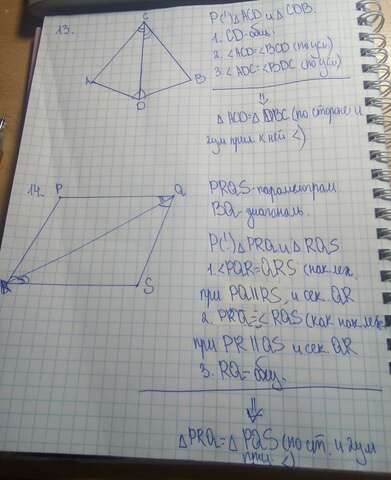 13.
C
A
B
D
P(!) △ACD и △CDB.
1. CD-общ.
2. <ACD=<BCD (по усл)
3. <ADC=<BDC (по усл)
⇓
△ACD=△DBC (по стороне и
2ум прил к ней <)
14.
P
Q
R
S
PRQS-параметграм
BQ-диагональ.
P(!) △PRQ и △RQS
1. <PQR=QRS (нак.леж.
при PQ||RS, и сек. QR
2. PRQ=<RQS (как нак.леж
при PR||QS и сек. QR
3. RQ-общ.
⇓
△PRQ=△PQS (по ст. и 2ум
прил. <)